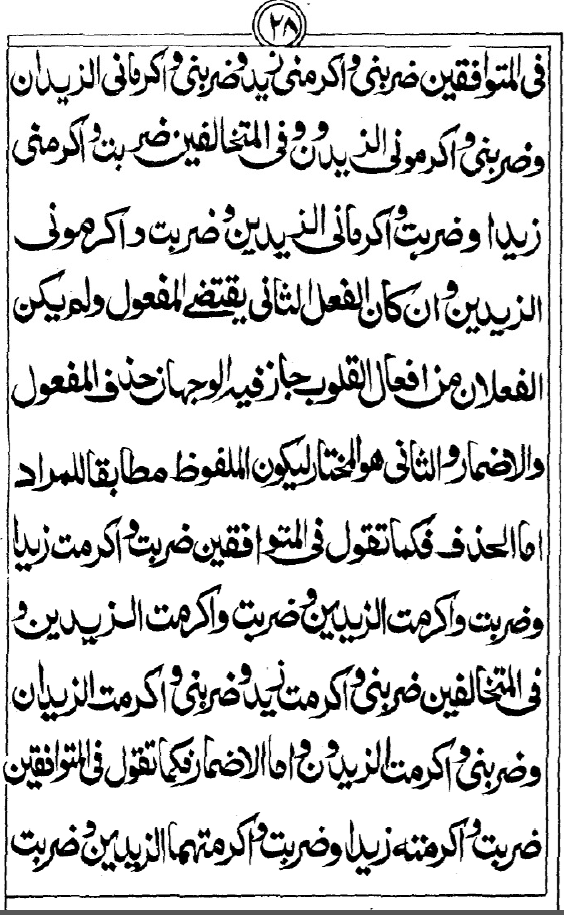 ٢٨
فى المتوافقين ضربنى واكرمنى زيد وضربنى واكرمانى الزيدان
وضربنى واكرمونى الزيدون وفى المتخالفين ضربت واكرمنى
زيدا وضربت واكرمانى الزيدين وضربت واكرمونى
الزيدين وان كان الفعل الثانى يقتضى المفعول ولم يكن
الفعلان من افعال القلوب جاز فيه الوجهان حذف المفعول
والاضمار والثانى هو المختار ليكون الملفوظ مطابقا للمراد
اما الحذف فكما تقول فى المتوافقين ضربت واكرمت زيدا
وضربت واكرمت الزيدين وضربت واكرمت الزيدين و
فى المتخالفين ضربنى واكرمت زيد وضربنى واكرمت الزيدان
وضربنى واكرمت الزيدون واما الاضمار فكما تقول فى المتوافقين
ضربت واكرمته زيدا وضربت واكرمتهما الزيدين وضربت